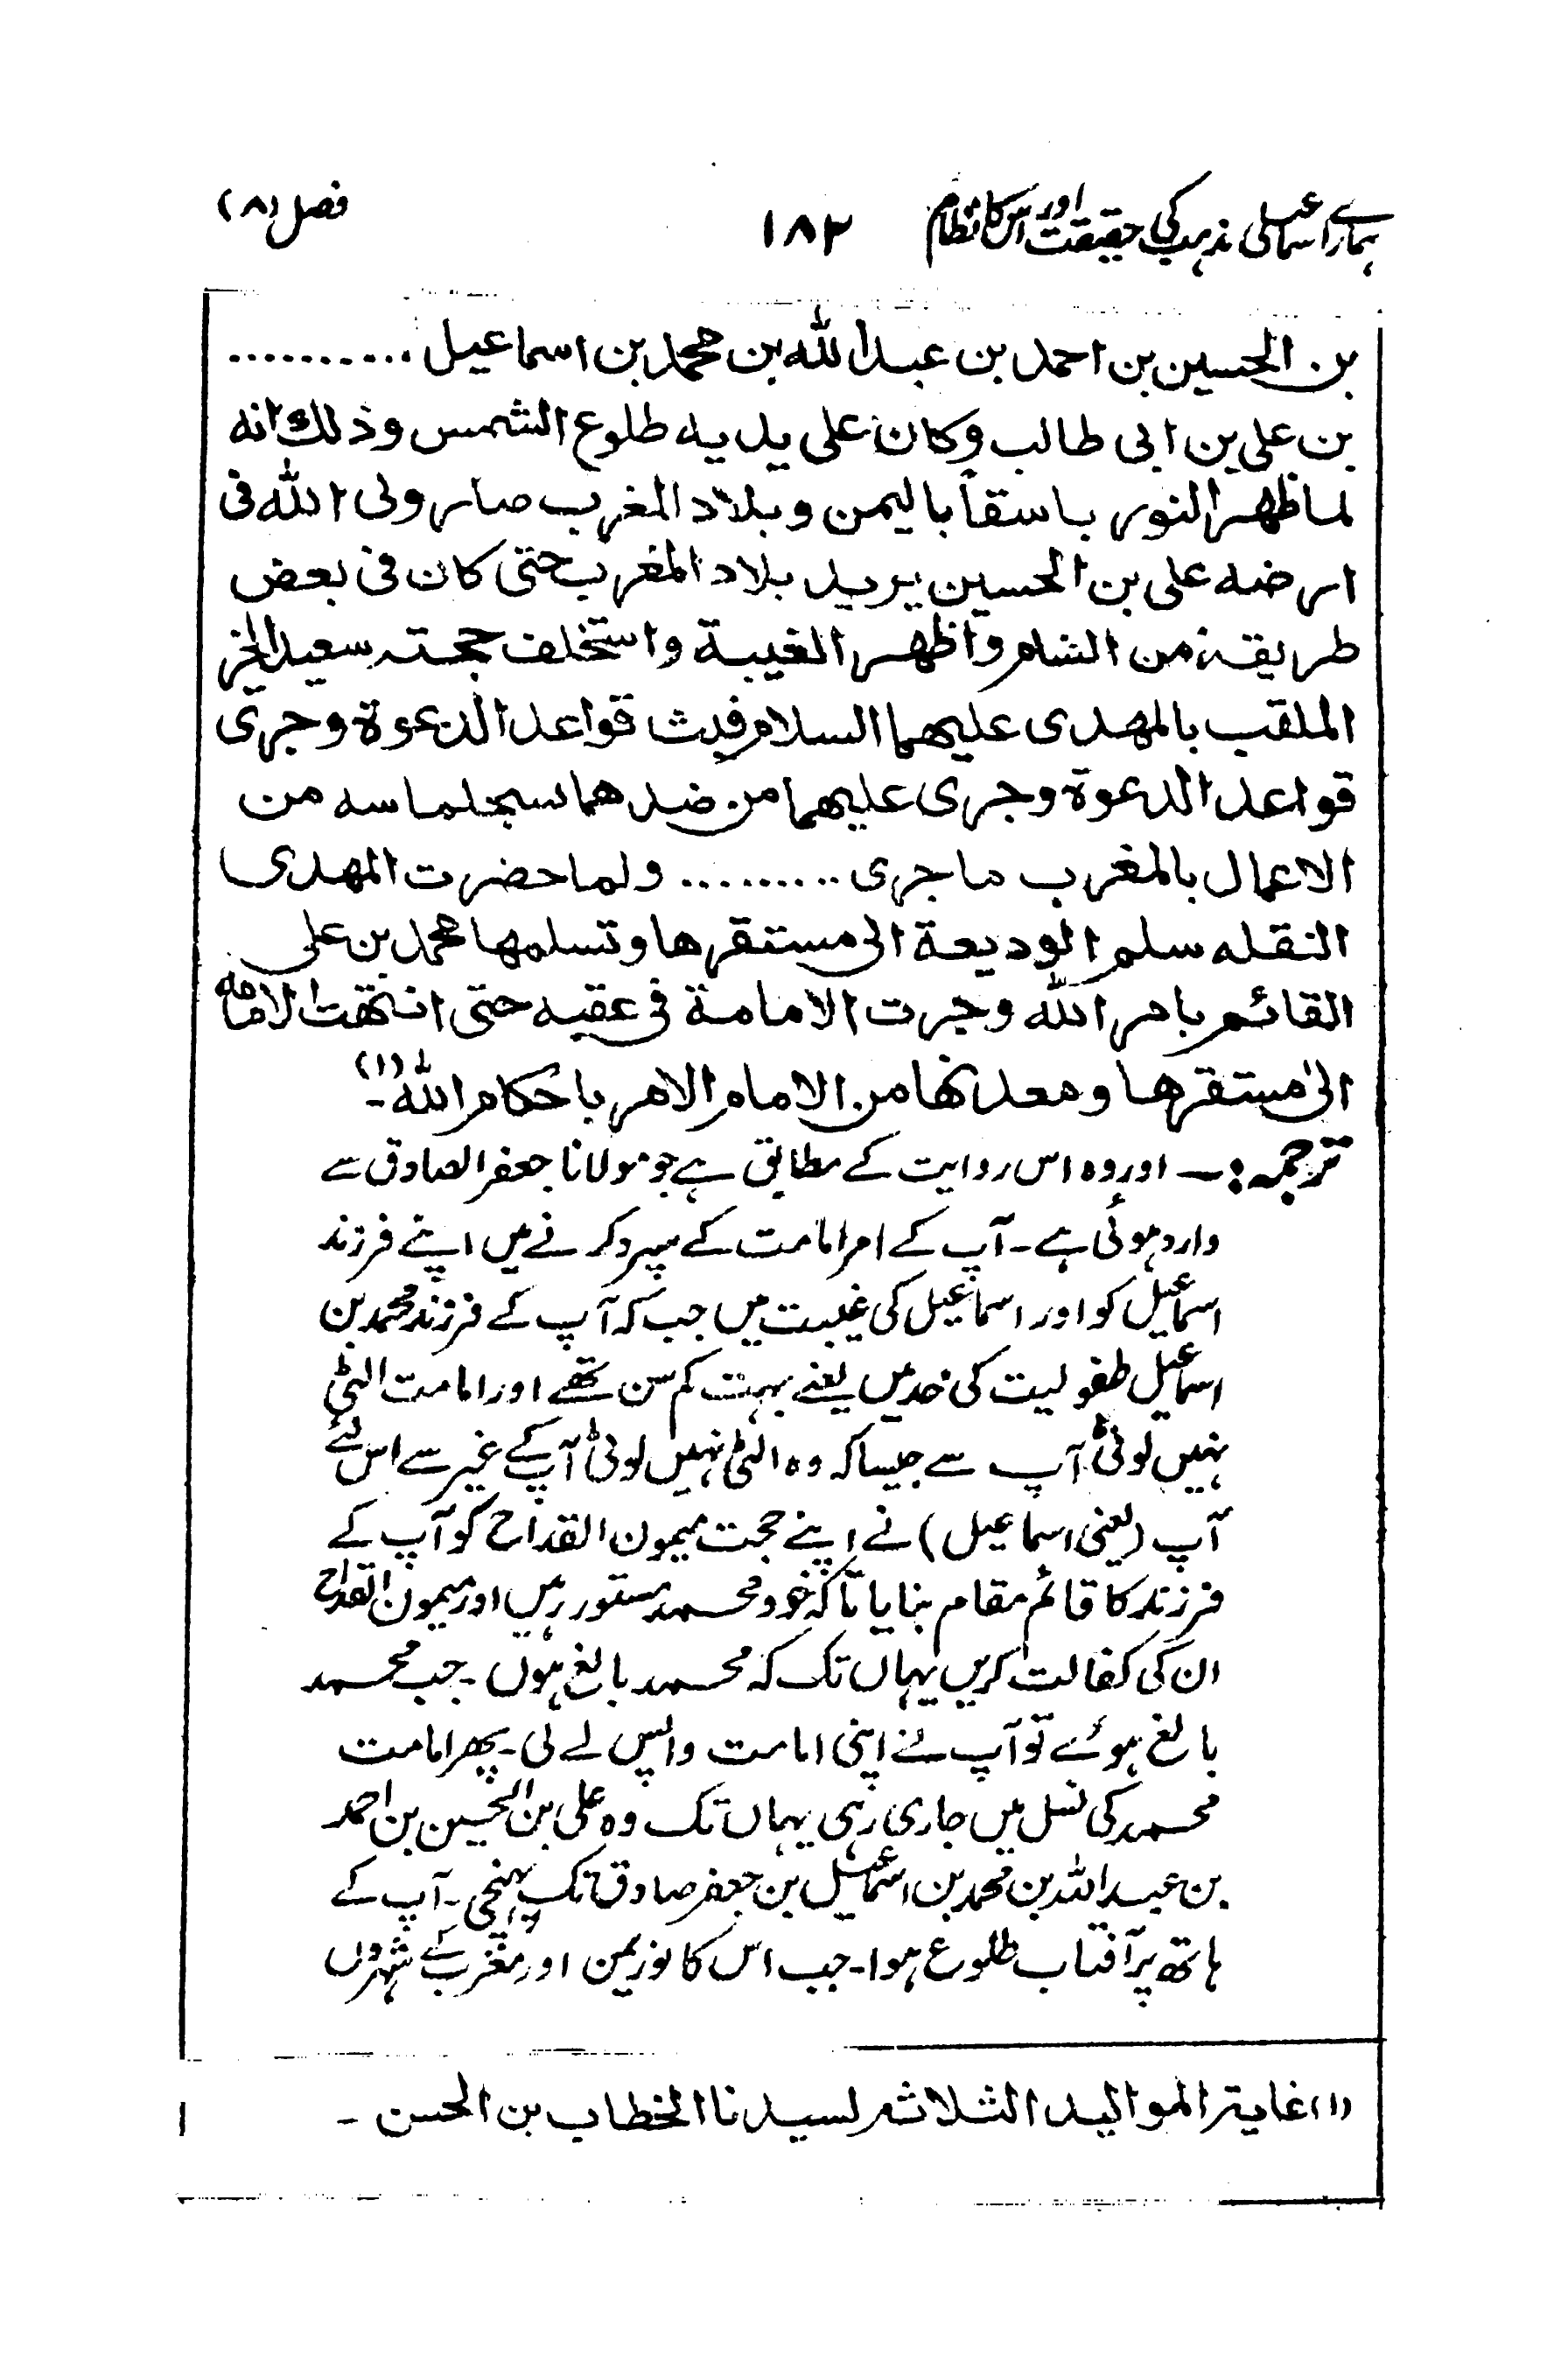 ہمارے اسماعیلی مذہب کی حقیقت اور اس کا نظام ۱۸۲ فصل (۸)
بن الحسین بن احمد بن عبد اللہ بن محمد بن اسماعیل ..........
بن علی بن ابی طالب وکان علی یدیہ طلوع الشمس وذلك انہ
لما ظهر النور باسقاً بالیمن وبلاد المغرب صار ولی اللہ فی
ارضه علی بن الحسین یرید بلاد المغرب حتی کان فی بعض
طریقہ من الشام واظهر الغیبة واستخلف حجتہ سعید الخیر
الملقب بالمهدی علیهما السلام فبث قواعد الدعوة وجری
قواعد الدعوة وجری علیهما من ضدهما سجلماسه من
الاعمال بالمغرب ماجری ......... ولما حضرت المهدی
النقله سلم الودیعة الی مستقرها وتسلمها محمد بن علی
القائم بامر اللہ وجرت الامامة فی عقبه حتی انتهت الامامه
الیٰ مستقرها ومعدنها من الامام الامر باحکام اللہ۔(۱)
ترجمہ :۔ اور وہ اس روایت کے مطابق ہے جو مولانا جعفر الصادق سے
وارد ہوئی ہے۔ آپ کے امر امامت کے سپرد کرنے میں اپنے فرزند
اسماعیل کو اور اسماعیل کی غیبت میں جب کہ آپ کے فرزند محمد بن
اسماعیل طفولیت کی حد میں یعنے بہت کم سن تھے اور امامت الٹی
نہیں لوٹی آپ سے جیسا کہ وہ الٹی نہیں لوٹی آپ کے غیر سے اس لئے
آپ (یعنی اسماعیل) نے اپنے حجت میمون القداح کو آپ کے
فرزند کا قائم مقام بنایا تاکہ خود محمد مستور رہیں اور میمون القداح
ان کی کفالت کریں یہاں تک کہ محمد بالغ ہوں۔ جب محمد
بالغ ہوئے تو آپ نے اپنی امامت واپس لے لی۔ پھر امامت
محمد کی نسل میں جاری رہی یہاں تک وہ علی بن الحسین بن احمد
بن عبد اللہ بن محمد بن اسماعیل بن جعفر صادق تک پہنچی۔ آپ کے
ہاتھ پر آفتاب طلوع ہوا۔ جب اس کا نور یمن اور مغرب کے شہروں
(۱) غایتہ الموالید الثلاثہ لسیدنا الخطاب بن الحسن ۔